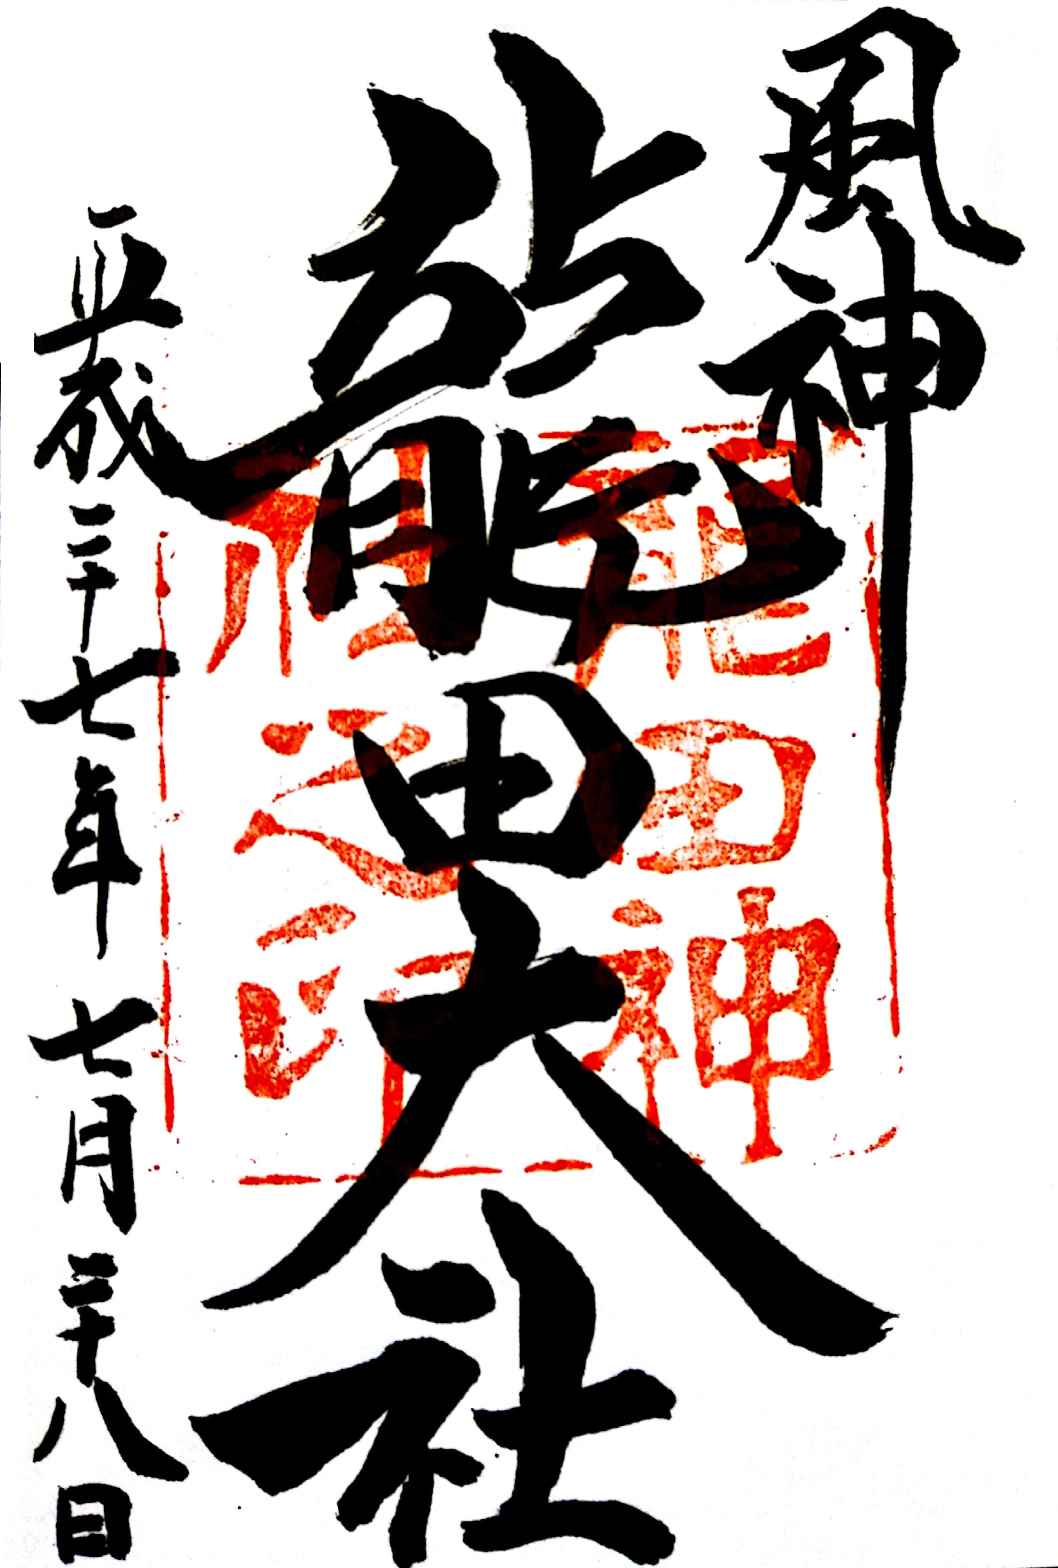 風神
龍田大社
龍田神
位之印
平成二十七年 七月二十八日